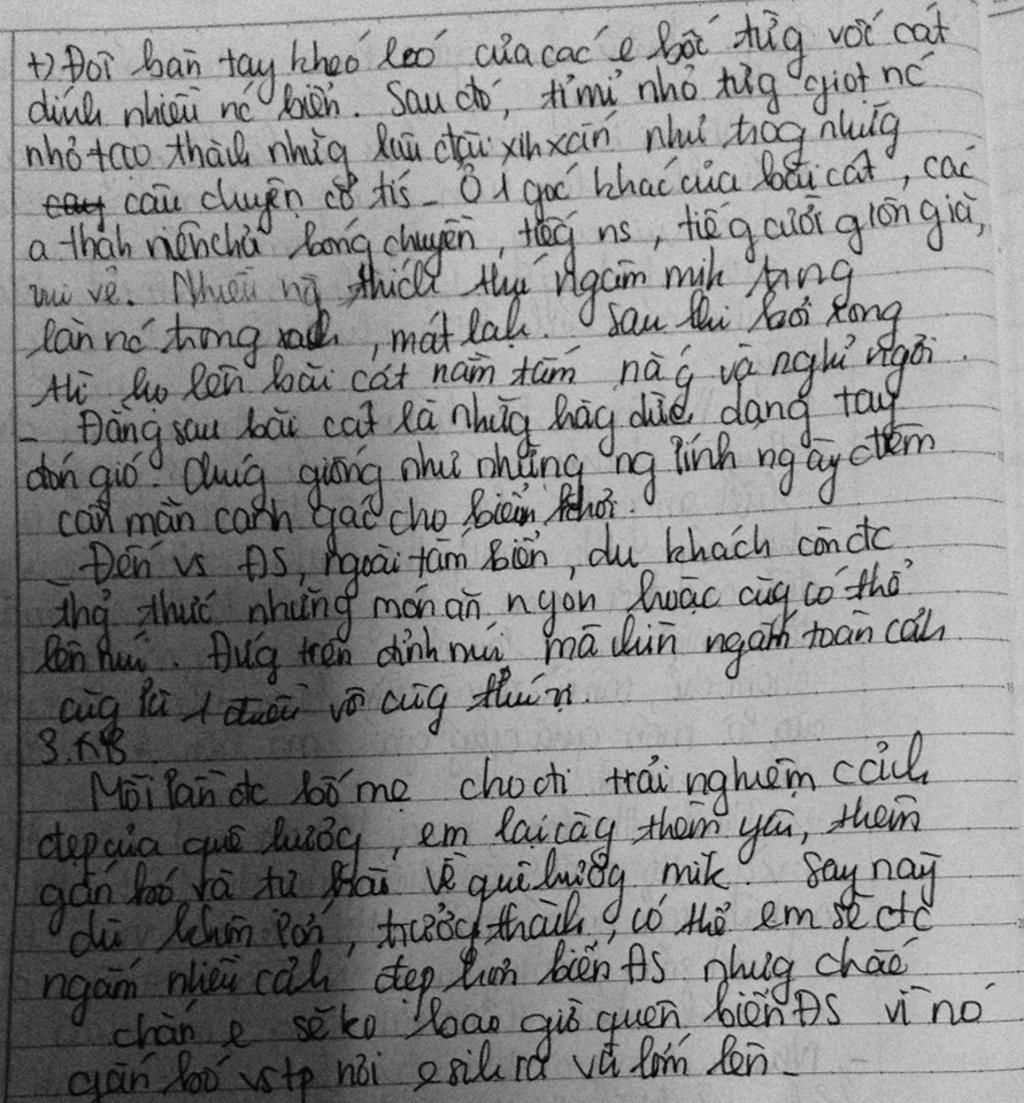 +) Đôi bàn tay khéo léo của các e bốc từg vốc cát
dính nhiều nc biển. Sau đó, tỉ mỉ nhỏ từg giọt nc
nhỏ tạo thành nhữg lâu đài xih xắn như trog nhữg
câu chuyện cổ tís. Ở 1 góc khác của bãi cát, các
a thah niên chơi bóng chuyền, tiếg ns, tiếg cười giòn giã,
vui vẻ. Nhiều ng thích thú ngâm mìh trong
làn nc trong xah, mát lạh. Sau khi bơi xong
thì họ lên bãi cát nằm tắm nắg và nghỉ ngơi.
- Đằng sau bãi cát là nhữg hàg dừa dang tay
đón gió. Chúg giống như những ng lính ngày đêm
cần mẫn canh gác cho biển khơi.
- Đến vs ĐS, ngoài tắm biển, du khách còn đc
thg thức những món ăn ngon hoặc cũg có thể
lên núi. Đứg trên đỉnh núi mà nhìn ngắm toàn cảh
cũg là 1 điều vô cùg thú vị.
3. KB
Mỗi lần đc bố mẹ cho đi trải nghiệm ccảh
đẹp của quê hươg, em lại càg thêm yêu, thêm
gắn bó và tự hào về quê hươg mìk. Say này
dù khôn lớn, trưởg thàh, có thể em sẽ đc
ngắm nhiều cảh đẹp hơn biển ĐS nhưg chắc
chắn e sẽ ko bao giờ quên biển ĐS vì nó
gắn bó vs tp nơi e sih ra và lớn lên.